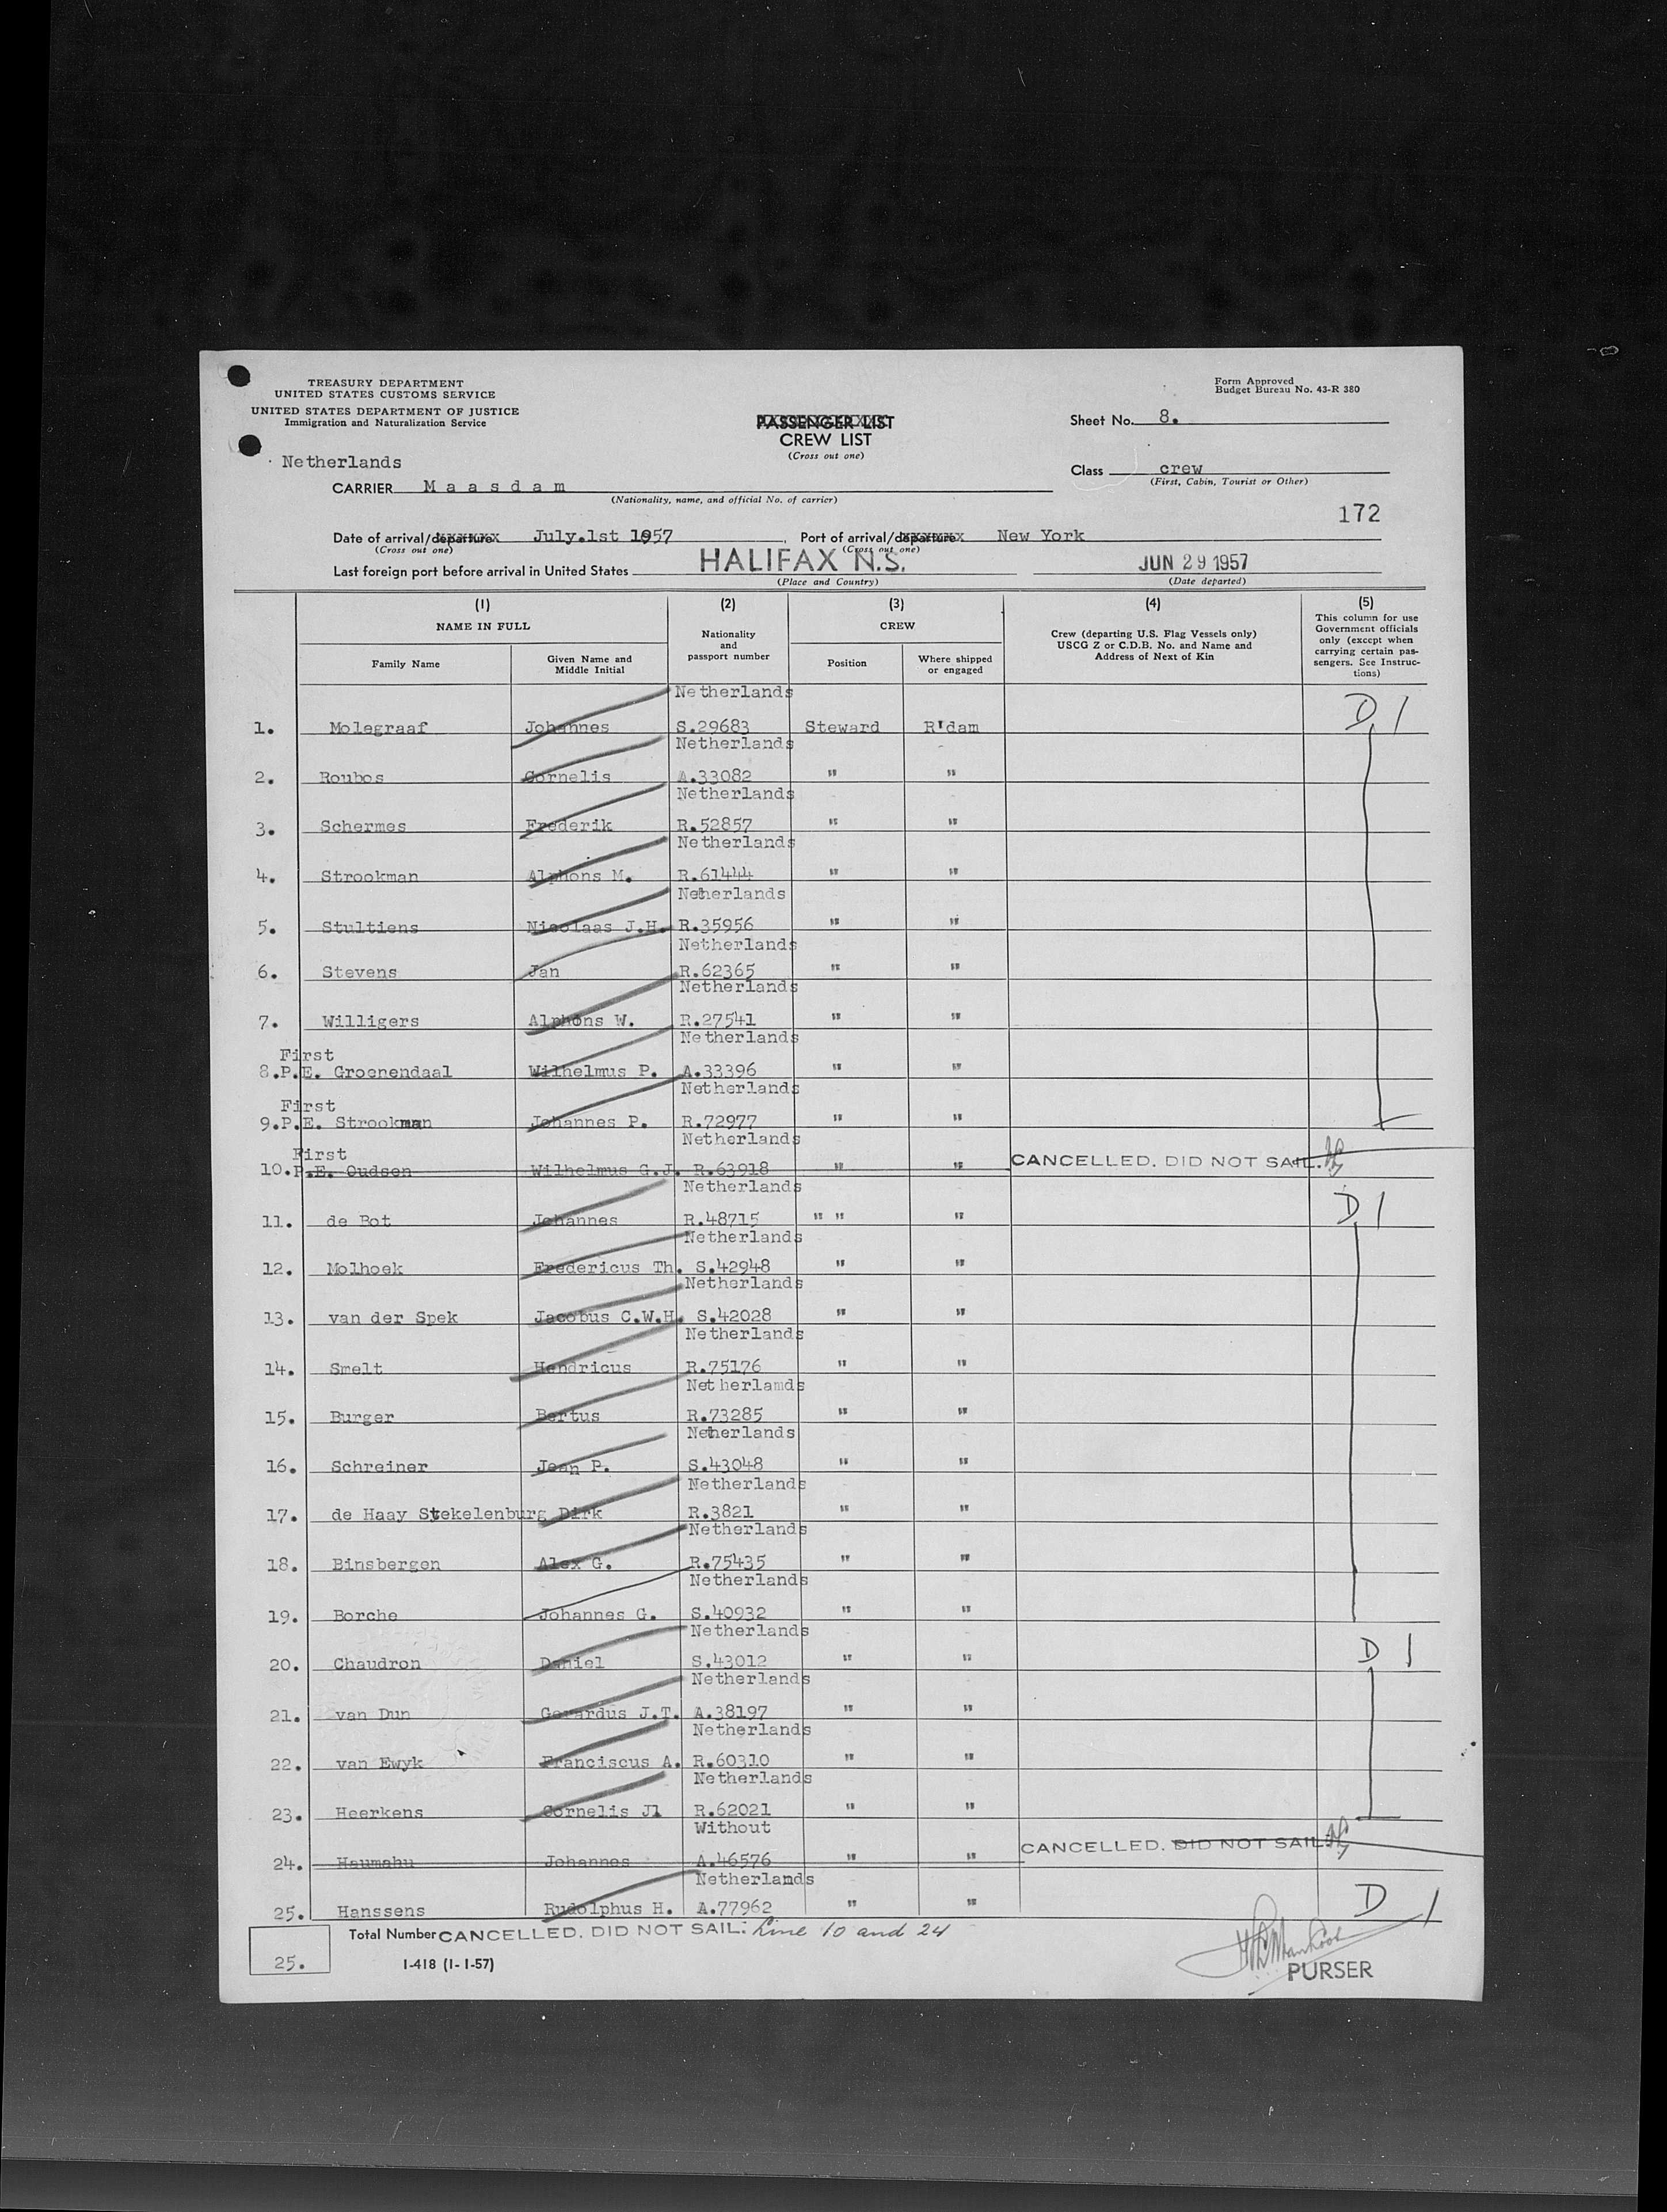 TREASURY DEPARTMENT
UNITED STATES CUSTOMS SERVICE
UNITED STATES DEPARTMENT OF JUSTICE
Immigration and Naturalization Service
Form Approved
Budget Bureau No. 43-R 380
PASSENGER LIST
CREW LIST
(Cross out one)
Sheet No. 8.
Netherlands
CARRIER M a a s d a m
(Nationality, name, and official No. of carrier)
Class crew
(First, Cabin, Tourist or Other)
172
Date of arrival/departure July.1st 1957, Port of arrival/departure New York
(Cross out one) (Cross out one)
Last foreign port before arrival in United States HALIFAX N.S. JUN 29 1957
(Place and Country) (Date departed)
(1) (2) (3) (4) (5)
NAME IN FULL
Family Name
Given Name and Middle Initial
Nationality and passport number
CREW
Position
Where shipped or engaged
Crew (departing U.S. Flag Vessels only) USCG Z or C.D.B. No. and Name and Address of Next of Kin
This column for use Government officials only (except when carrying certain passengers. See Instructions)
Netherlands
1. Molegraaf Johannes S.29683 Steward R'dam D 1
Netherlands
2. Roubos Cornelis A.33082 " "
Netherlands
3. Schermes Frederik R.52857 " "
Netherlands
4. Strookman Alphons M. R.61444 " "
Netherlands
5. Stultiens Nicolaas J.H. R.35956 " "
Netherlands
6. Stevens Jan R.62365 " "
Netherlands
7. Willigers Alphons W. R.27541 " "
Netherlands
First
8.P.E. Groenendaal Wilhelmus P. A.33396 " "
Netherlands
First
9.P.E. Strookman Johannes P. R.72977 " "
Netherlands
First
10.P.E. Oudsen Wilhelmus G.J. R.63918 " " CANCELLED. DID NOT SAIL.
Netherlands
11. de Bot Johannes R.48715 " " " D 1
Netherlands
12. Molhoek Fredericus Th. S.42948 " "
Netherlands
13. van der Spek Jacobus C.W.H. S.42028 " "
Netherlands
14. Smelt Hendricus R.75176 " "
Netherlamds
15. Burger Bertus R.73285 " "
Netherlands
16. Schreiner Jean P. S.43048 " "
Netherlands
17. de Haay Stekelenburg Dirk R.3821 " "
Netherlands
18. Binsbergen Alex G. R.75435 " "
Netherlands
19. Borche Johannes G. S.40932 " "
Netherlands
20. Chaudron Daniel S.43012 " " D 1
Netherlands
21. van Dun Gerardus J.T. A.38197 " "
Netherlands
22. van Ewyk Franciscus A. R.60310 " "
Netherlands
23. Heerkens Cornelis Jl R.62021 " "
Without
24. Haumahu Johannes A.46576 " " CANCELLED. DID NOT SAIL.
Netherlands
25. Hanssens Rudolphus H. A.77962 " " D 1
Total Number CANCELLED. DID NOT SAIL: Line 10 and 24
25.
I-418 (1-1-57)
PURSER